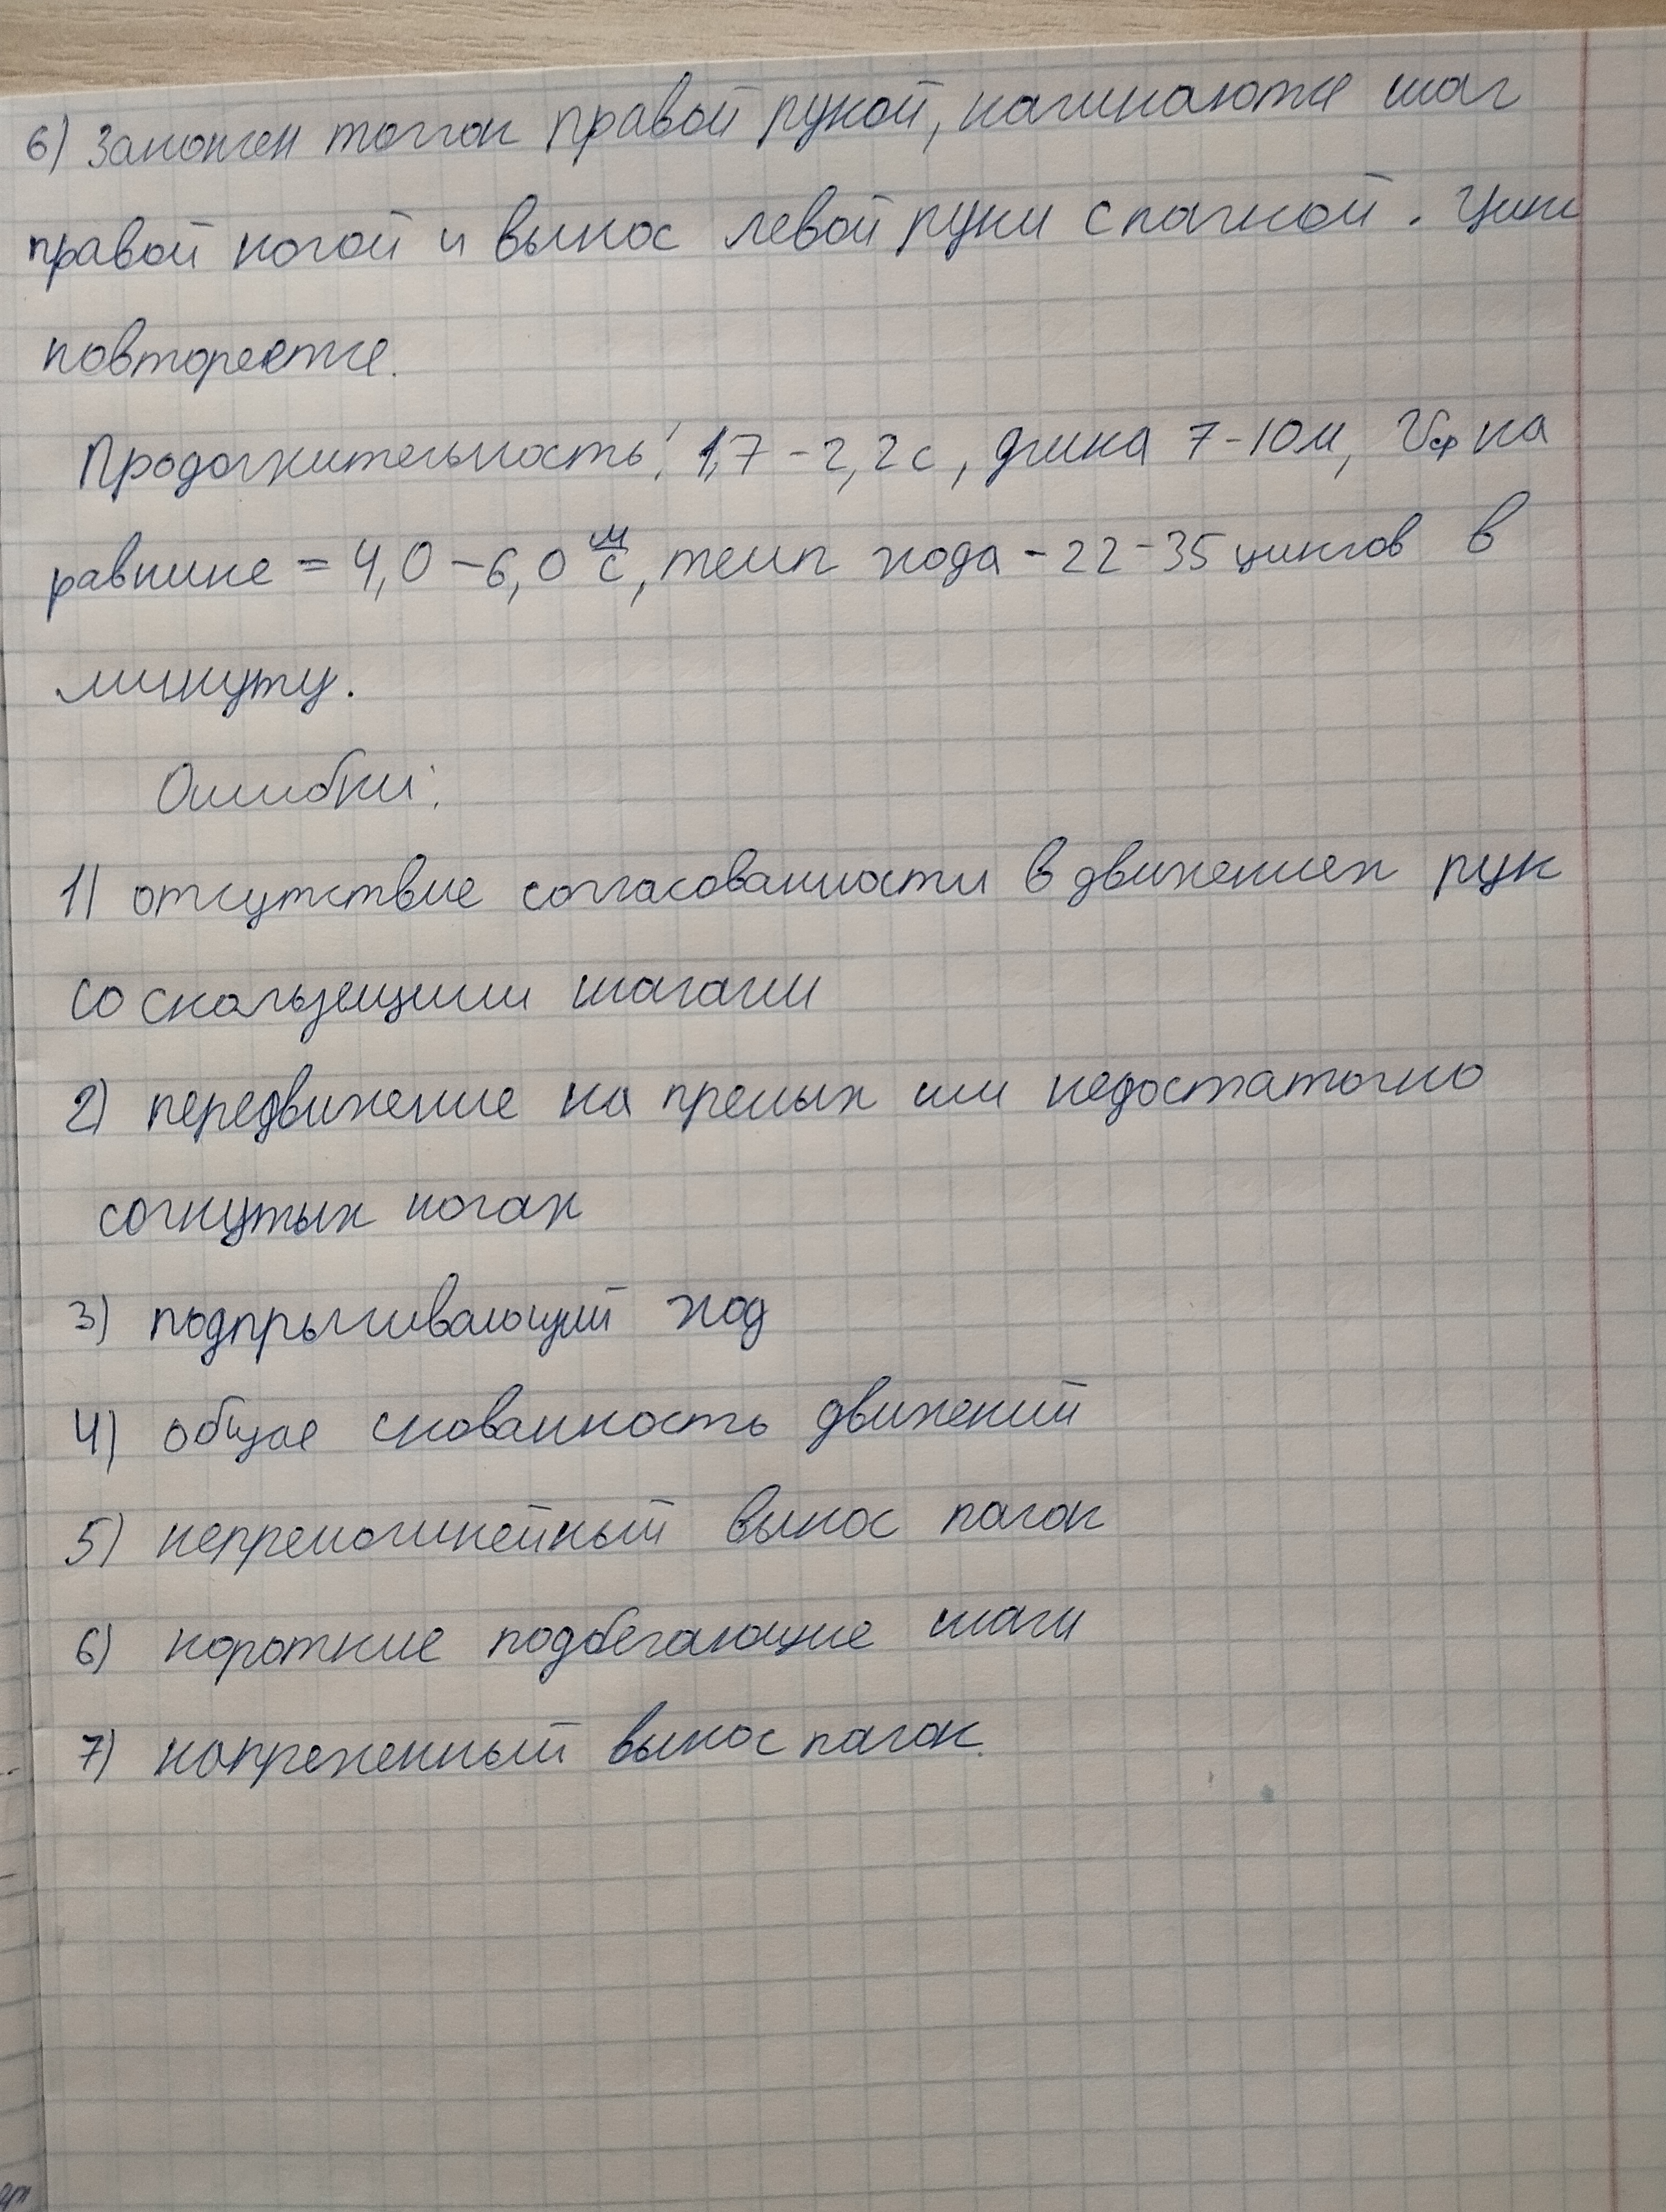 6) Закончен толчок правой рукой, начинаются шаг
правой ногой и вынос левой руки с палкой. Цикл
повторяется.
Продолжительность: 1,7 - 2,2 с, длина 7-10м, Vср на
равнине = 4,0 - 6,0 м/с, темп хода - 22-35 циклов в
минуту.
Ошибки:
1) отсутствие согласованности в движениях рук
со скользящими шагами
2) передвижение на прямых или недостаточно
согнутых ногах
3) подпрыгивающий ход
4) общая скованность движений
5) непрямолинейный вынос палок
6) короткие подбегающие шаги
7) напряженный вынос палок.